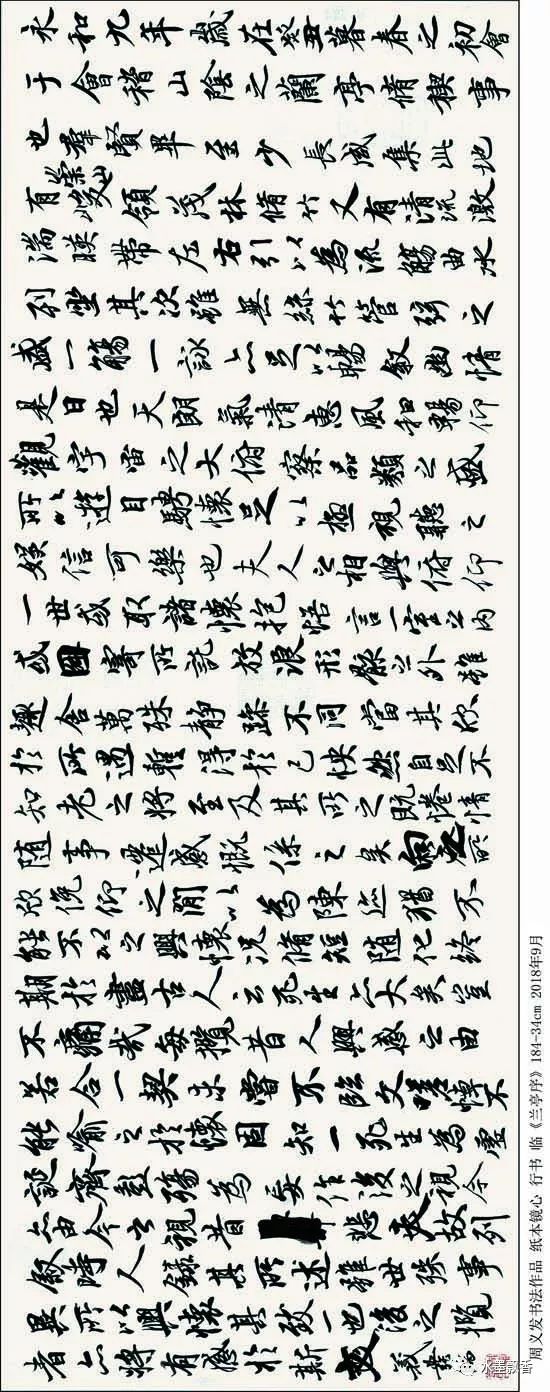 永和九年歲在癸丑暮春之初會
于會稽山陰之蘭亭脩禊事
也羣賢畢至少長咸集此地
有崇山峻領茂林脩竹又有清流激
湍暎帶左右引以為流觴曲水
列坐其次雖無絲竹管弦之
盛一觴一詠亦足以暢敘幽情
是日也天朗氣清惠風和暢仰
觀宇宙之大俯察品類之盛
所以遊目騁懷足以極視聽之
娛信可樂也夫人之相與俯仰
一世或取諸懷抱悟言一室之內
或因寄所託放浪形骸之外雖
趣舍萬殊靜躁不同當其欣
於所遇蹔得於己怏然自足不
知老之將至及其所之既惓情
隨事遷感慨係之矣向之所
欣俛仰之閒以為陳迹猶不
能不以之興懷況脩短隨化終
期於盡古人云死生亦大矣豈
不痛哉每攬昔人興感之由
若合一契未嘗不臨文嗟悼不
能喻之於懷固知一死生為虛
誕齊彭殤為妄作後之視今
亦由今之視昔悲夫故列
敘時人錄其所述雖世殊事
異所以興懷其致一也後之攬
者亦將有感於斯文
周义发书法作品 纸本镜心 行书 临《兰亭序》 184-34cm 2018年9月
水華飘香